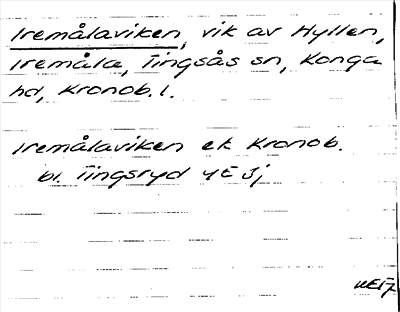 Iremålaviken, vik av Hyllen,
Iremåla, Tingsås sn, Konga
hd, Kronob. l.
Iremålaviken ek Kronob.
bl. Tingsryd 4E 3j